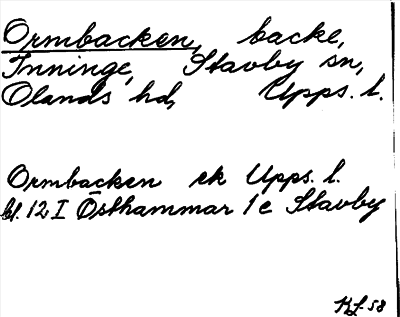 Ormbacken, backe,
Inninge, Stavby sn,
Olands hd, Upps. l.
Ormbacken ek Upps. l.
bl. 12 I Östhammar 1e Stavby
KL 58